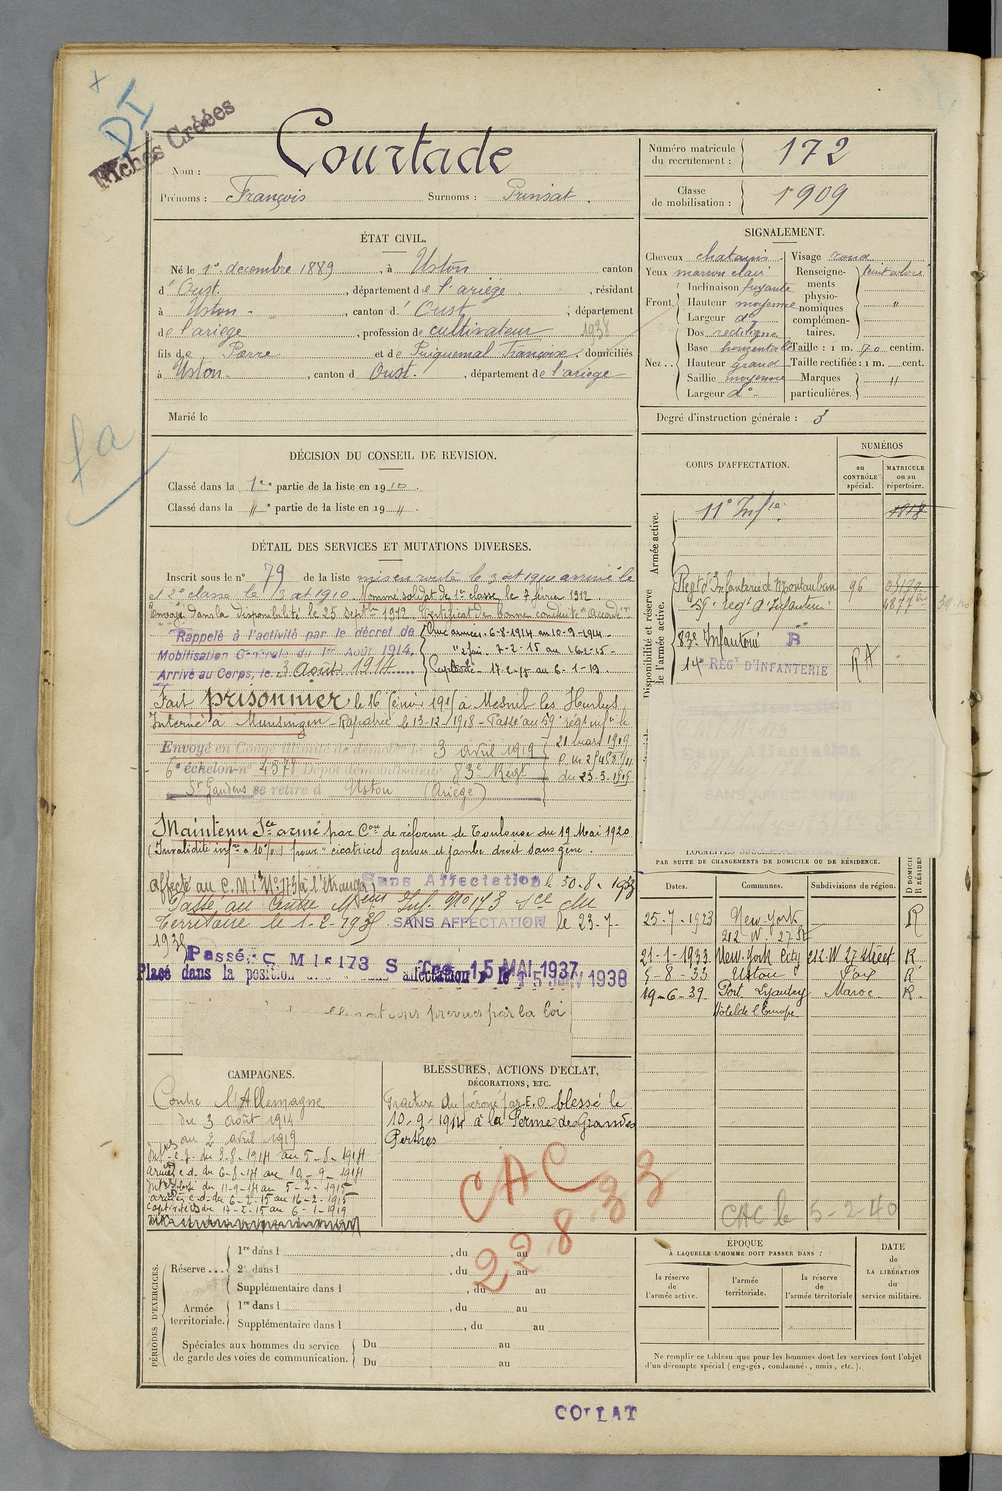 DI
Fiches Créées
Nom : Courtade
Prénoms : François Surnoms :
Numéro matricule du recrutement : 172
Classe de mobilisation : 1909
ÉTAT CIVIL.
Né le 1er décembre 1889, à Ustou canton
d'Oust, département de l'ariège, résidant
à Ustou, canton d'Oust, département
de l'ariège, profession de cultivateur 1938
fils de Pierre et de Françoise, domiciliés
à Ustou, canton d Oust, département de l'ariège
Marié le
SIGNALEMENT.
Cheveux chatains Visage rond
Yeux marron clair Renseignements physionomiques complémentaires.
Front Inclinaison fuyante
Hauteur moyenne
Largeur do
Nez Dos rectiligne
Base horizontale Taille : 1 m. 70 centim.
Hauteur grand Taille rectifiée : 1 m. cent.
Saillie moyenne Marques particulières. "
Largeur do
Degré d'instruction générale : 3
fa
DÉCISION DU CONSEIL DE REVISION.
Classé dans la 1re partie de la liste en 1910.
Classé dans la " e partie de la liste en 19 ".
CORPS D'AFFECTATION.
NUMÉROS
au CONTRÔLE spécial.
MATRICULE ou au répertoire.
Armée active.
11e Inf ie
1818
Disponibilité et réserve de l'armée active.
Regt d'Infanterie de Montauban 96
59e regt d'Infanterie
83e Infanterie B
14e RÉGt D'INFANTERIE RA
DÉTAIL DES SERVICES ET MUTATIONS DIVERSES.
Inscrit sous le no 79 de la liste mis en route le 3 oct 1910 arrivé le
et 2e classe le 3 oct 1910. Nommé soldat de 1re classe le 7 février 1912
Envoyé dans la disponibilité le 25 septbre 1912. Certificat de bonne conduite accordé
Rappelé à l'activité par le décret de
Mobilisation Générale du 1er Août 1914.
Arrivé au Corps, le 3 Août 1914
aux armées. 6-8-1914 au 10-9-1914
7-2-15 au 16-2-15
Captivité 17-2-15 au 6-1-19
Fait prisonnier le 16 février 1915 à Mesnil les Hurlus
Interné à Munsingen - Rapatrié le 13-12-1918 - Passé au 59e régt inf ie le
21 mars 1919
Envoyé en Congé illimité de démob le 3 avril 1919
6e échelon no 4578 Dépôt démobilisateur 83e Régt
du 23.3.1919
St Gaudens se retire à Ustou (Ariège)
Maintenu Sce armé par Con de réforme de Toulouse du 19 Mai 1920
(Invalidité infre à 10%) pour cicatrices genou et jambe droit sans gêne.
Affecté au C.M.I No 173 (à l'étranger)
Sans Affectation
Passé au Centre Mon Inf. No 173 Sce du
Territoire le 1-2-193
SANS AFFECTATION le 23-7-
1935
Passé C M I 173 S 15 MAI 1937
Placé dans la position affectation le 15 1938
prévues par la loi
Sans Affectation
SANS AFFECTATION
PAR SUITE DE CHANGEMENTS DE DOMICILE OU DE RÉSIDENCE.
Dates. Communes. Subdivisions de région.
25-7-1923 New-York R
212 W. 27 St
21-1-1933 New-York City 212 W 27 Street R
5-8-33 Ustou Foix R
19-6-39 Port Lyautey Maroc R.
Hôtel de l'Europe
CAC le 5-2-40
CAMPAGNES.
Contre l'Allemagne
du 3 août 1914
au 2 avril 1919
Intre c.s. du 3-8-1914 au 5-8-1914
Armées c.d. du 6-8-14 au 10-9-1914
du 11-9-14 au 5-2-1915
armées c.d. du 6-2-15 au 16-2-1915
Captivité du 17-2-15 au 6-1-1919
BLESSURES, ACTIONS D'ÉCLAT,
DÉCORATIONS, ETC.
Fracture du péroné par E.O. blessé le
10-9-1914 à la Ferme de Grandes
Perthes
CAC
22 8 33
PÉRIODES D'EXERCICES.
Réserve ... 1re dans l , du au
2e dans l , du au
Supplémentaire dans l , du au
Armée territoriale. 1re dans l , du au
Supplémentaire dans l , du au
Spéciales aux hommes du service de garde des voies de communication. Du au
Du au
ÉPOQUE
À LAQUELLE L'HOMME DOIT PASSER DANS :
la réserve de l'armée active.
l'armée territoriale.
la réserve de l'armée territoriale
DATE DE LA LIBÉRATION du service militaire.
Ne remplir ce tableau que pour les hommes dont les services font l'objet
d'un décompte spécial (engagés, condamnés, omis, etc.).
COLLAT